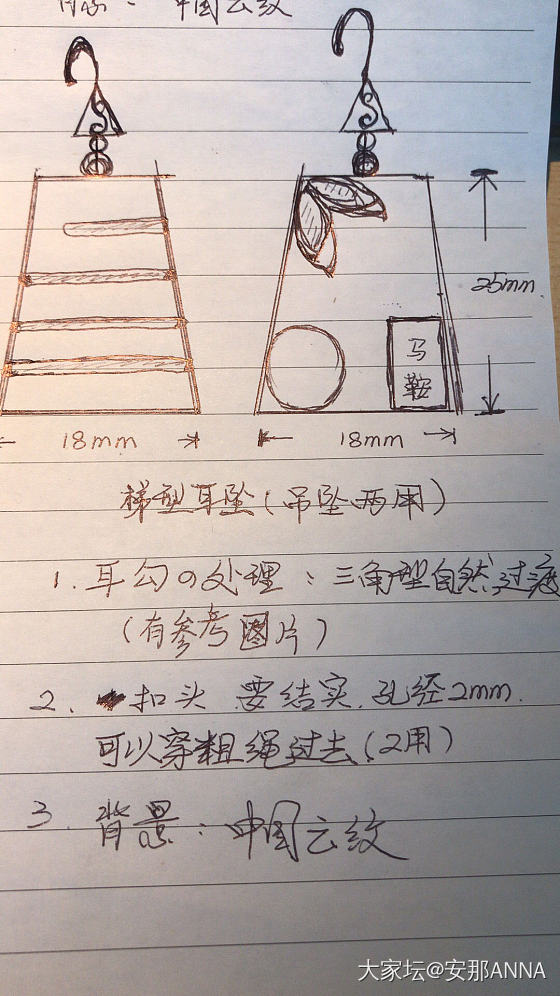 背景：中国云纹
25mm
马
鞍
18mm
18mm
梯型耳坠（吊坠两用）
1. 耳勾の处理：三角型自然过渡
（有参考图片）
2. 扣头 要结实.孔经2mm.
可以穿粗绳过去（2用）
3. 背景：中国云纹
大家坛@安那ANNA